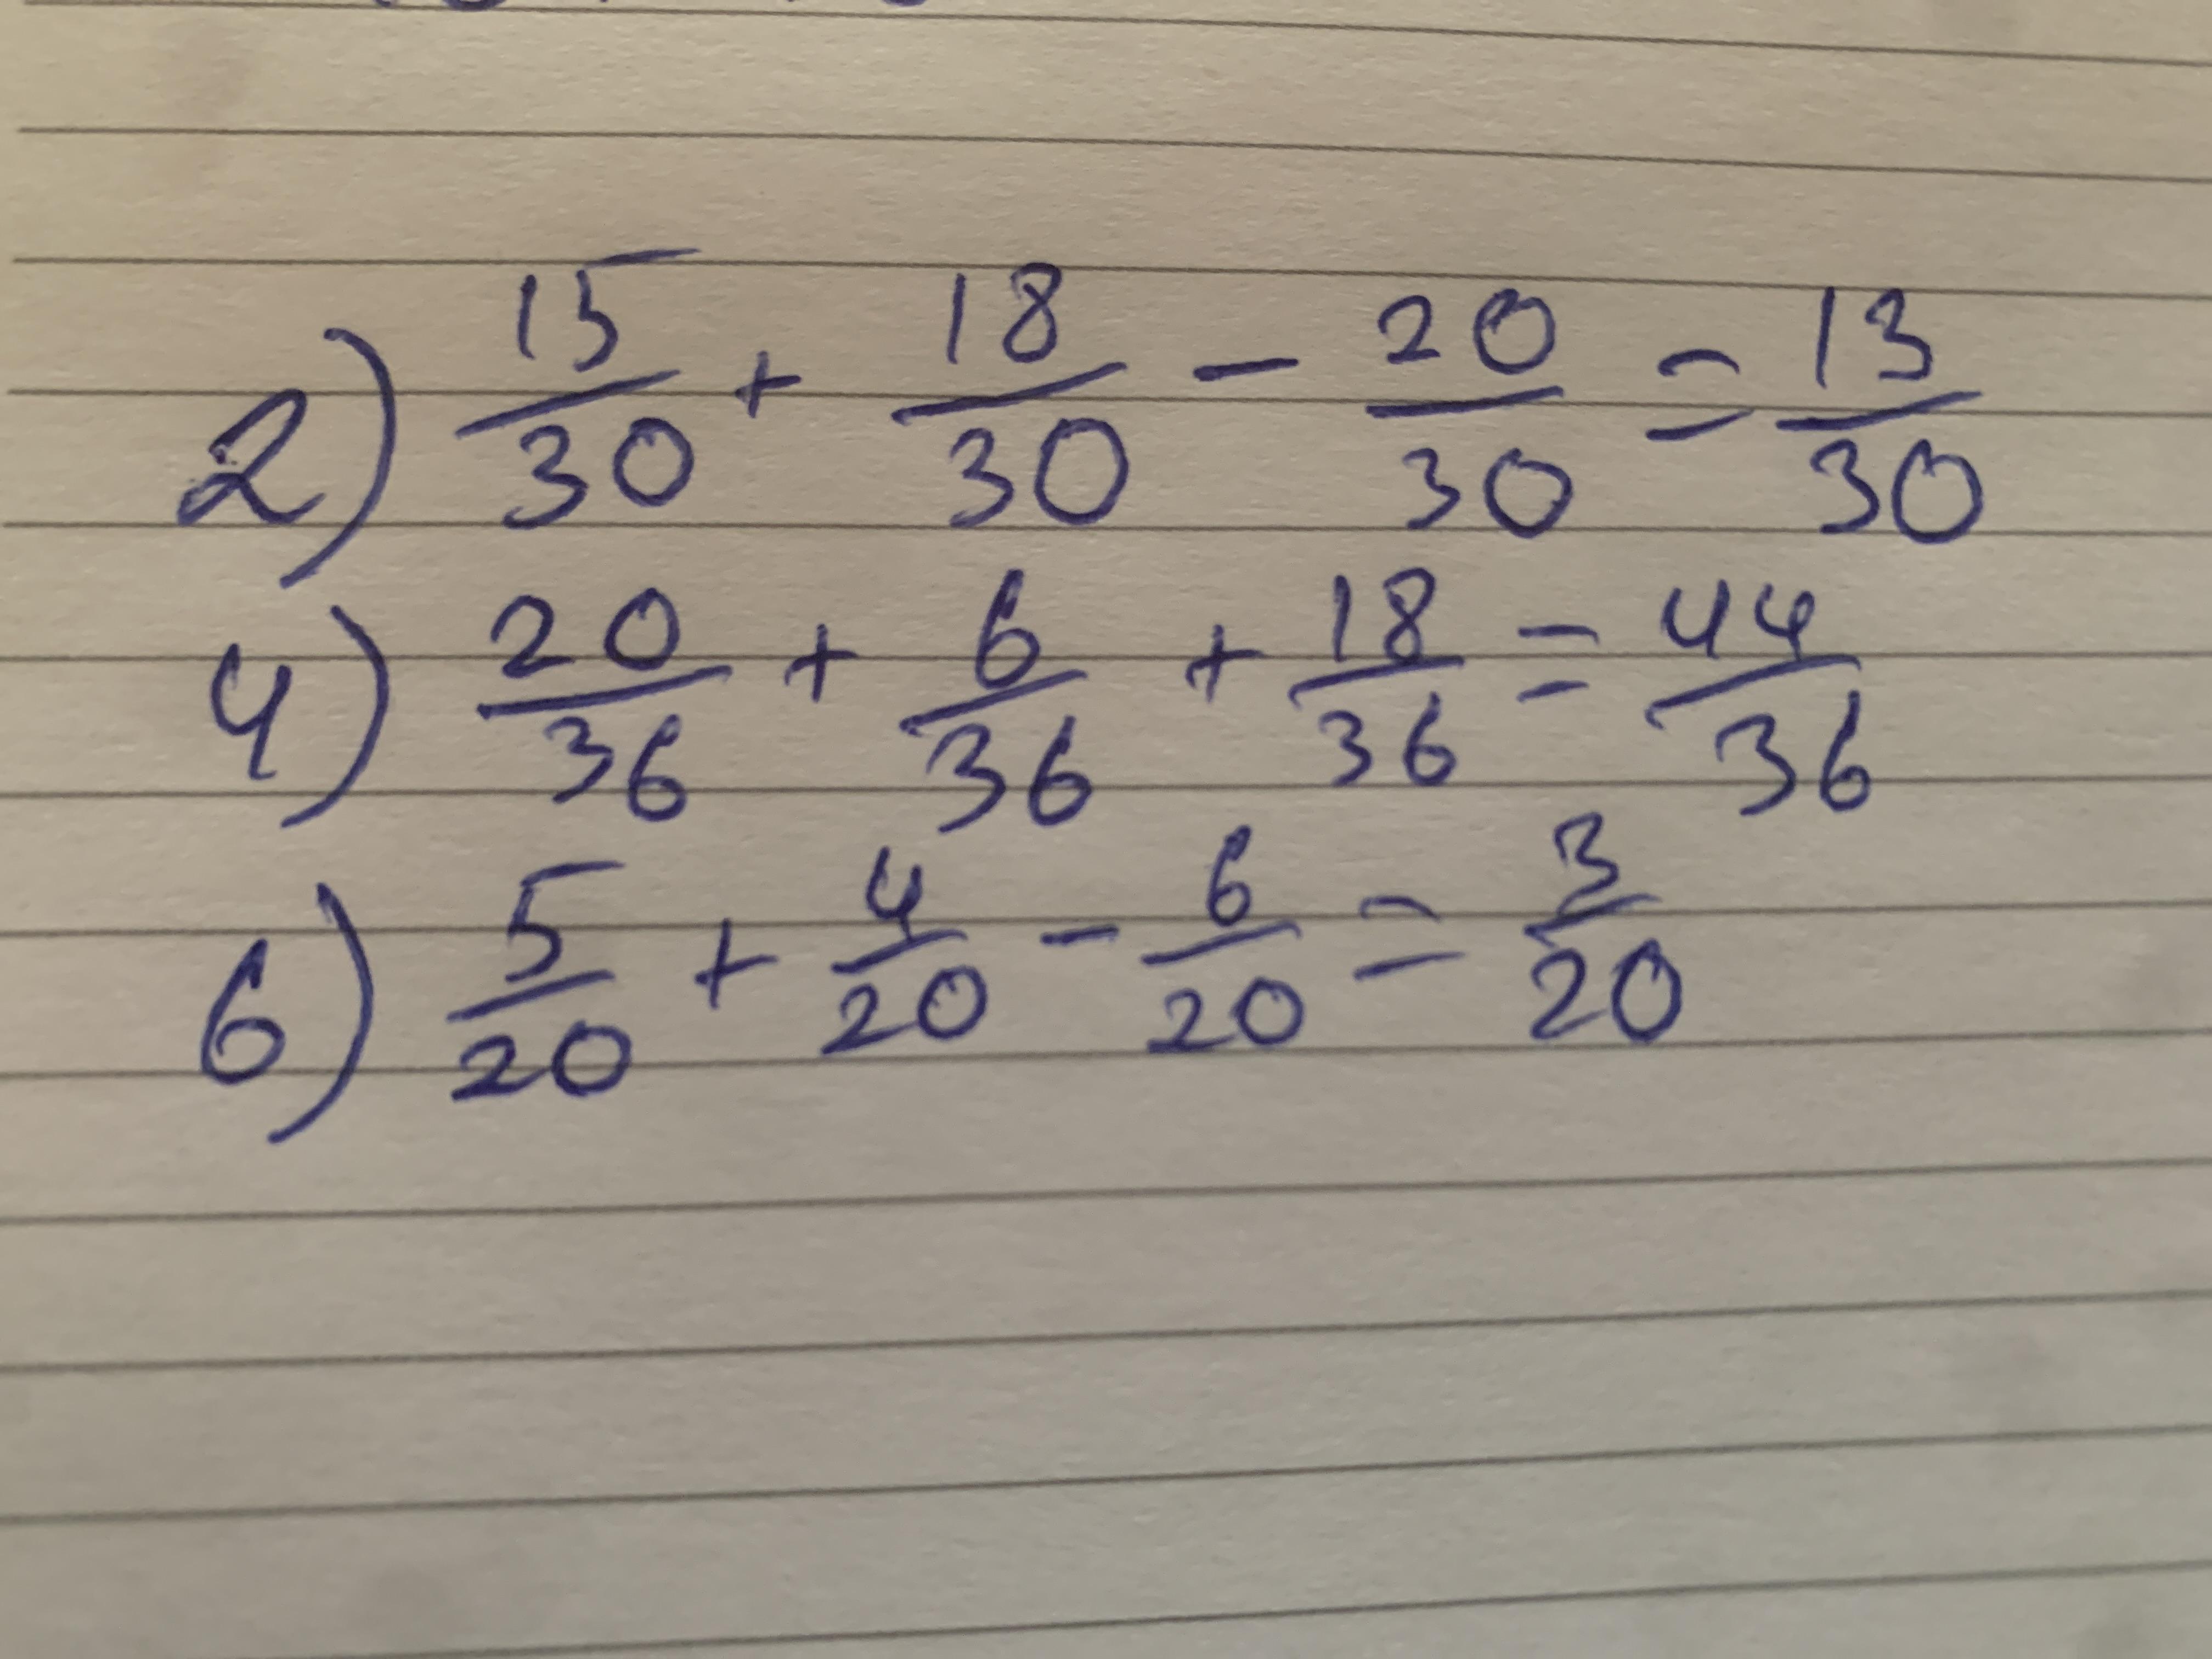 2) 15/30 + 18/30 - 20/30 = 13/30
4) 20/36 + 6/36 + 18/36 = 44/36
6) 5/20 + 4/20 - 6/20 = 3/20